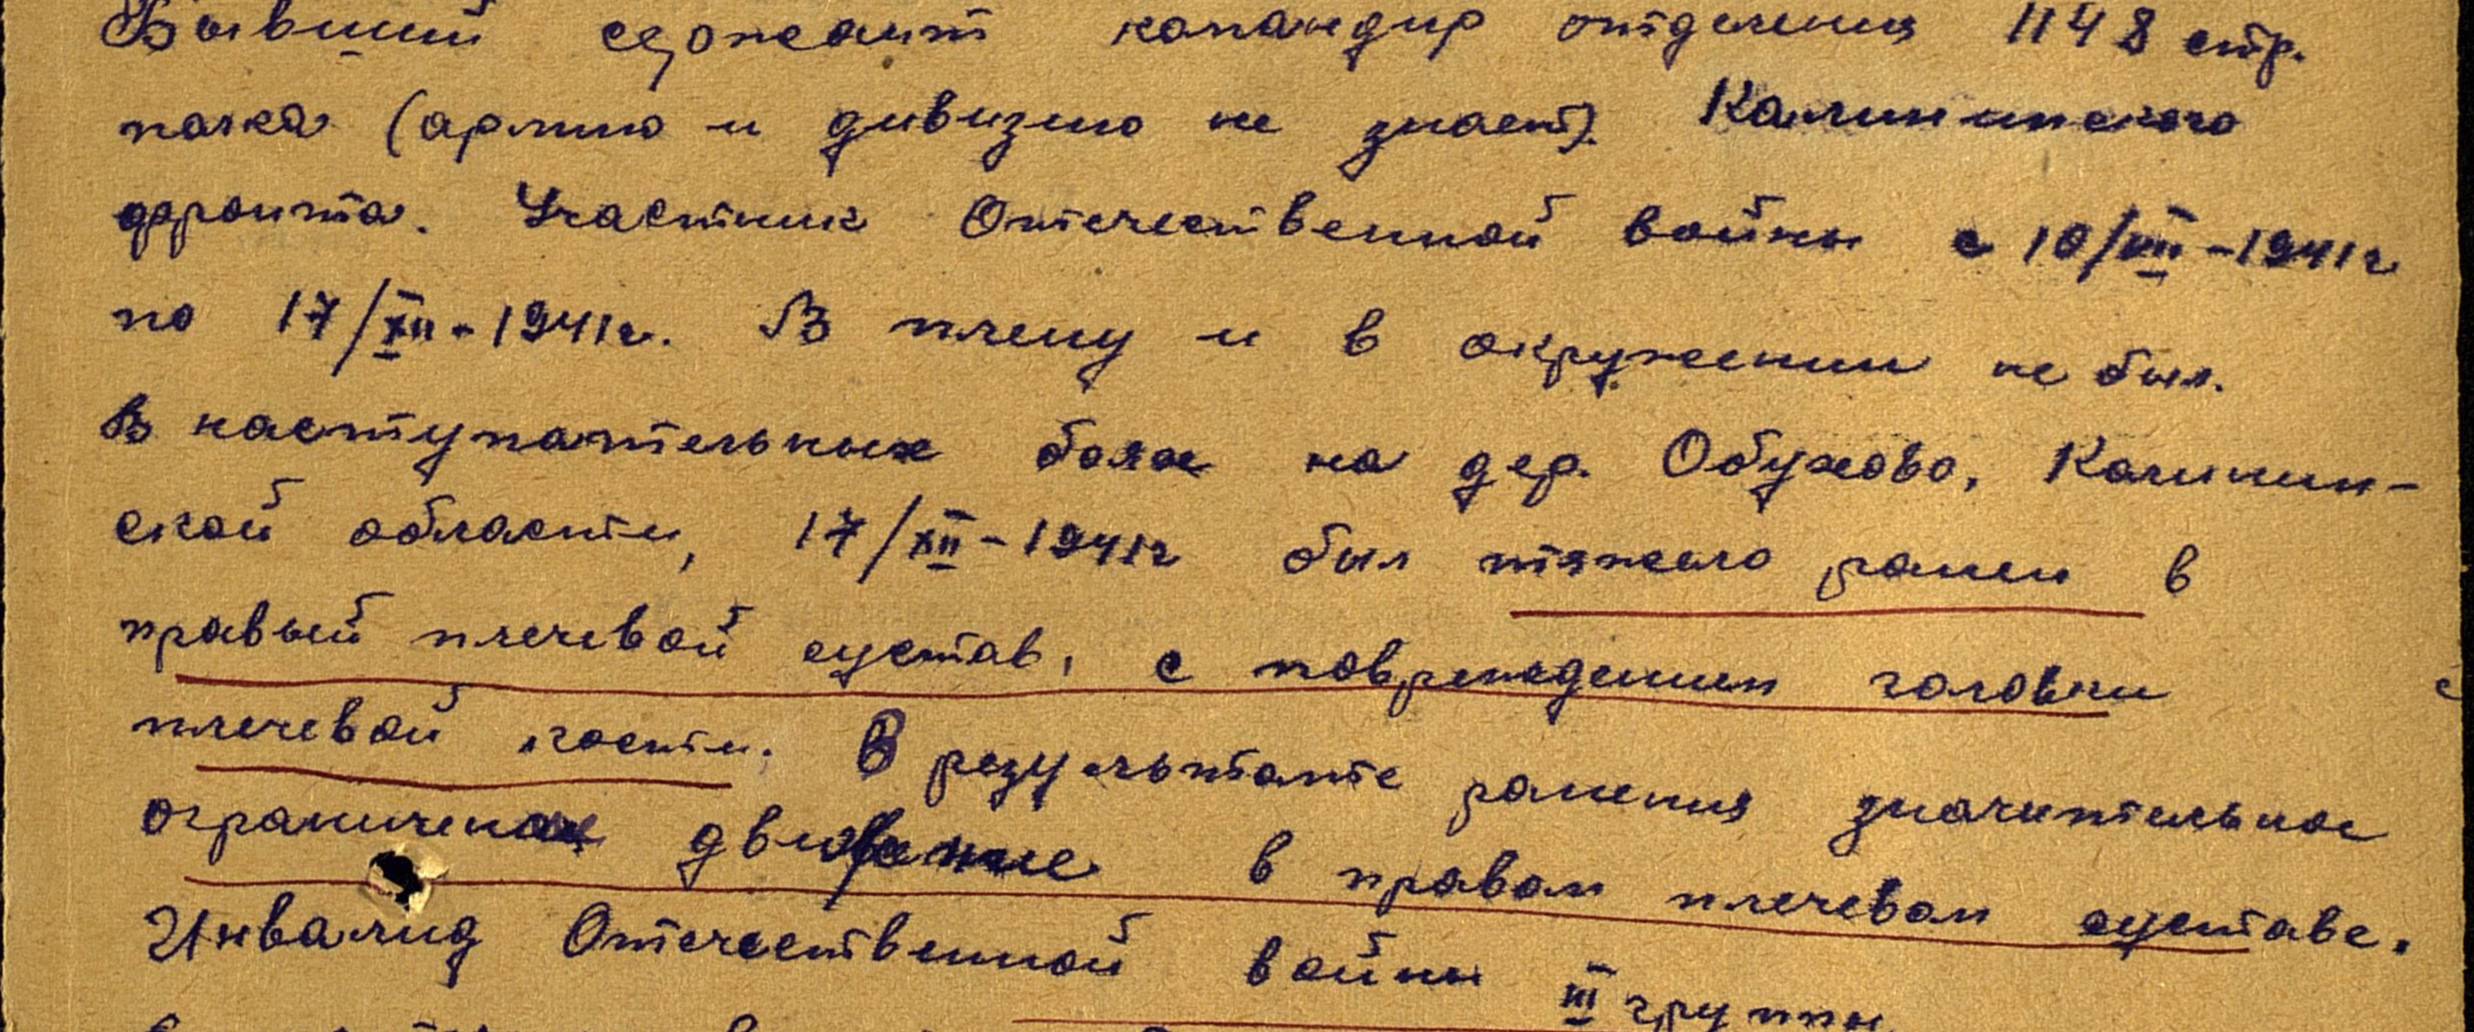 Бывший сержант командир отделения 1148 стр.
полка (армию и дивизию не знает) Калининского
фронта. Участник Отечественной войны с 10/VII-1941г
по 17/XII-1941г. В плену и в окружении не был.
В наступательных боях на дер. Обухово, Калинин-
ской области, 17/XII-1941г был тяжело ранен в
правый плечевой сустав, с повреждением головки
плечевой кости. В результате ранения значительное
ограничение движение в правом плечевом суставе.
Инвалид Отечественной войны III группы